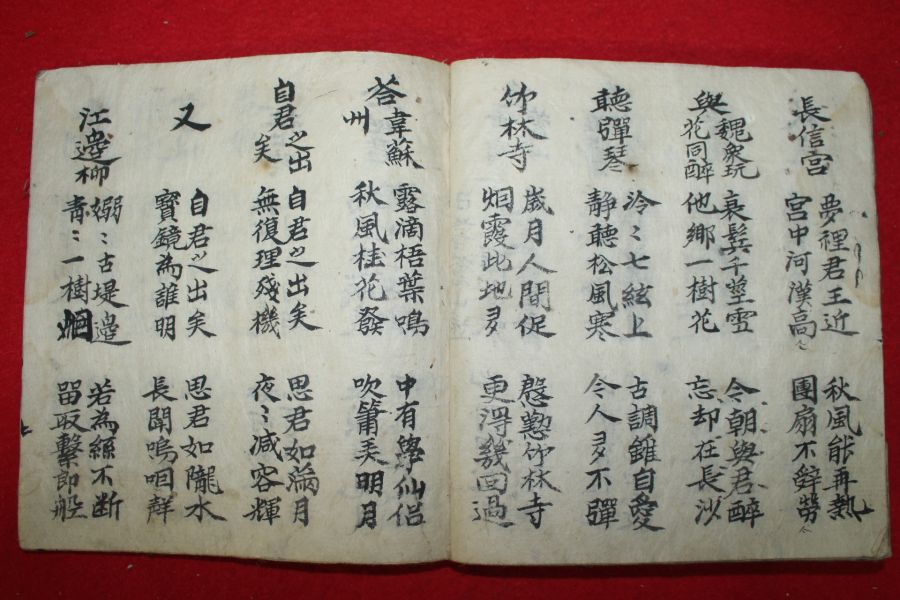 長信宮
夢裡君王近
宮中河漢高
秋風能再熱
團扇不辭勞
與魏衆玩
花同醉
衰鬂千莖雪
他鄉一樹花
今朝與君醉
忘却在長沙
聽彈琴
泠〻七絃上
静聽松風寒
古調雖自愛
今人多不彈
竹林寺
歲月人間促
烟霞此地多
慇懃竹林寺
更淂幾回過
答韋蘇
州
露滴梧葉鳴
秋風桂花發
中有學仙侶
吹簫美明月
自君之出
矣
自君之出矣
無復理殘機
思君如滿月
夜〻減容輝
又
自君之出矣
寶鏡為誰明
思君如隴水
長聞嗚咽聲
江邊柳
嫋〻古堤邊
青〻一樹烟
若為絲不断
留取繫郎船